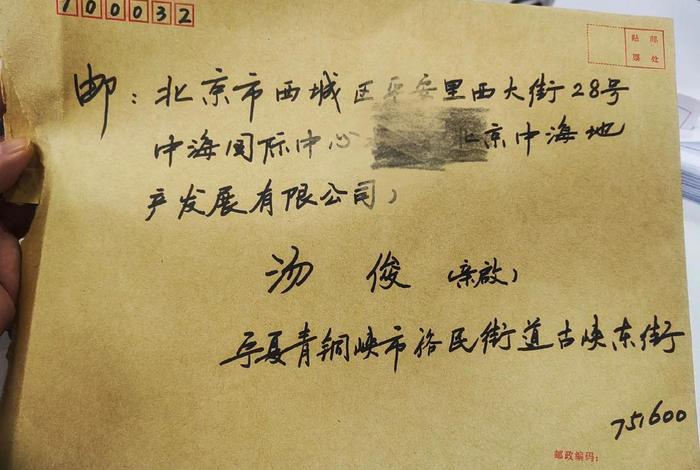 100032
贴 邮
票 处
邮:北京市西城区平安里西大街28号
中海国际中心 北京中海地
产发展有限公司)
汤 俊 (亲启)
宁夏青铜峡市裕民街道古峡东街
751600
邮政编码: